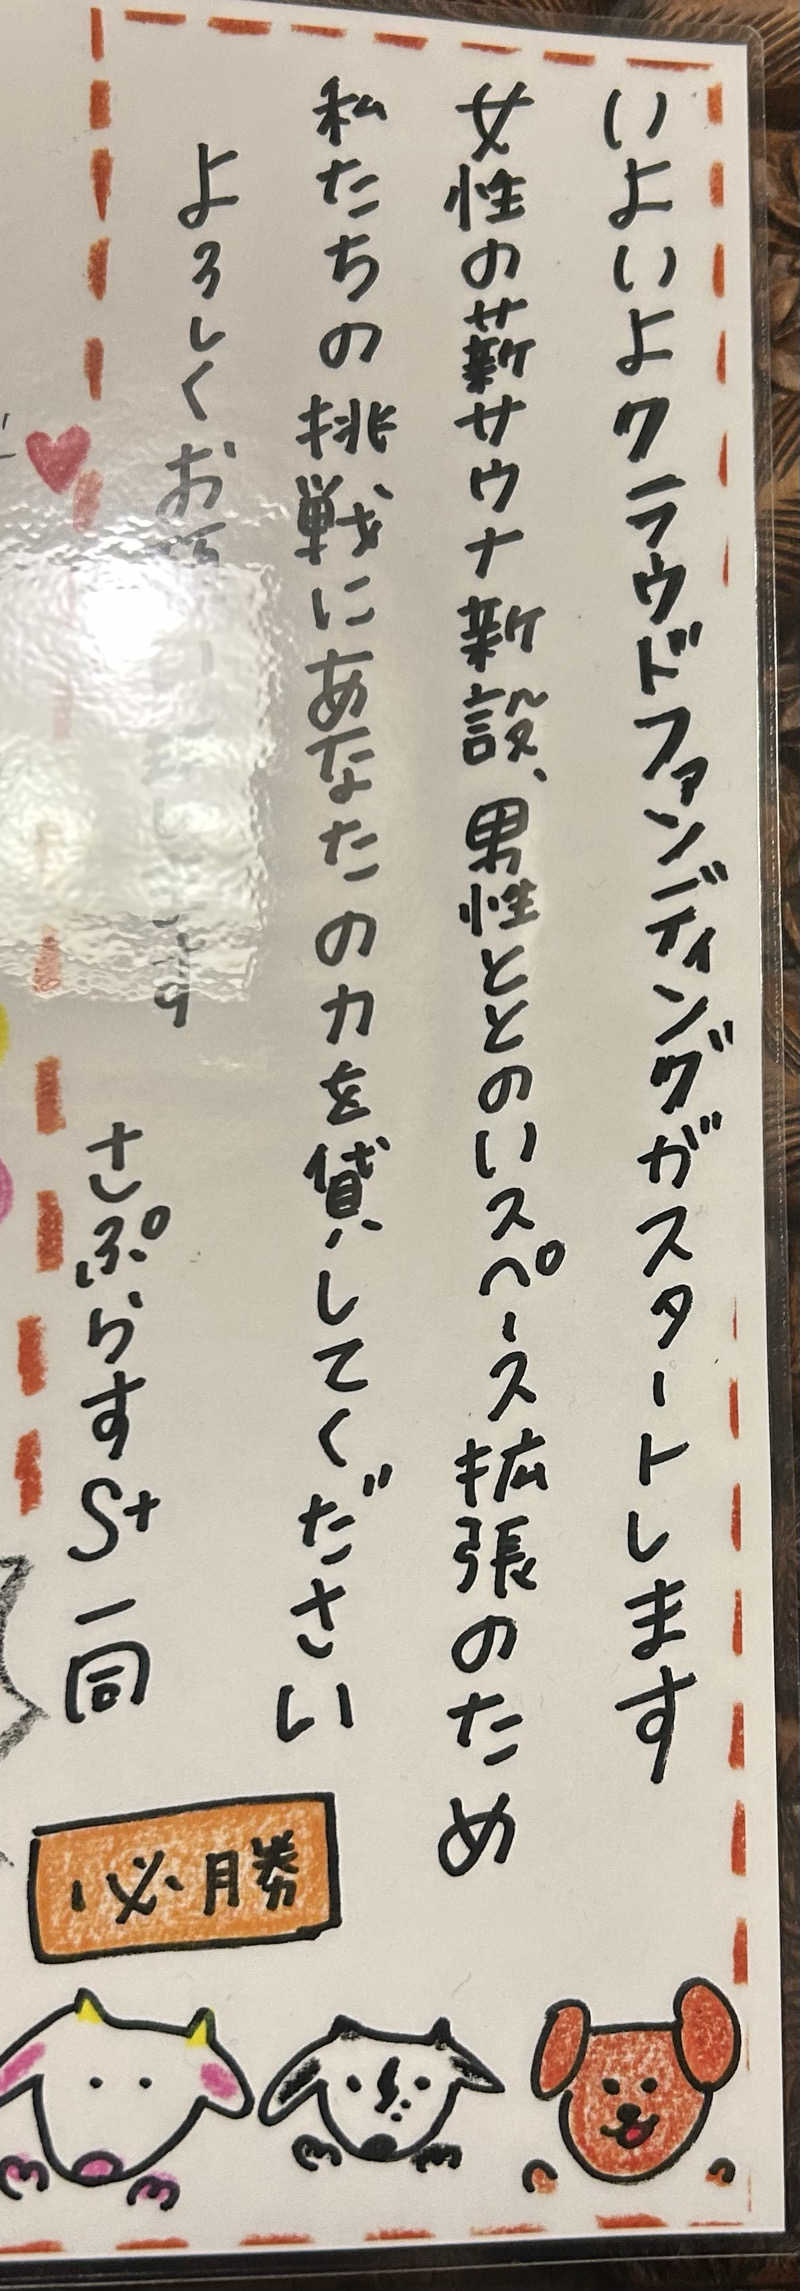 いよいよクラウドファンディングがスタートします
女性の薪サウナ新設、男性ととのいスペース拡張のため
私たちの挑戦にあなたの力を貸してください
よろしくお願いします
さぷらすS+一同
必勝